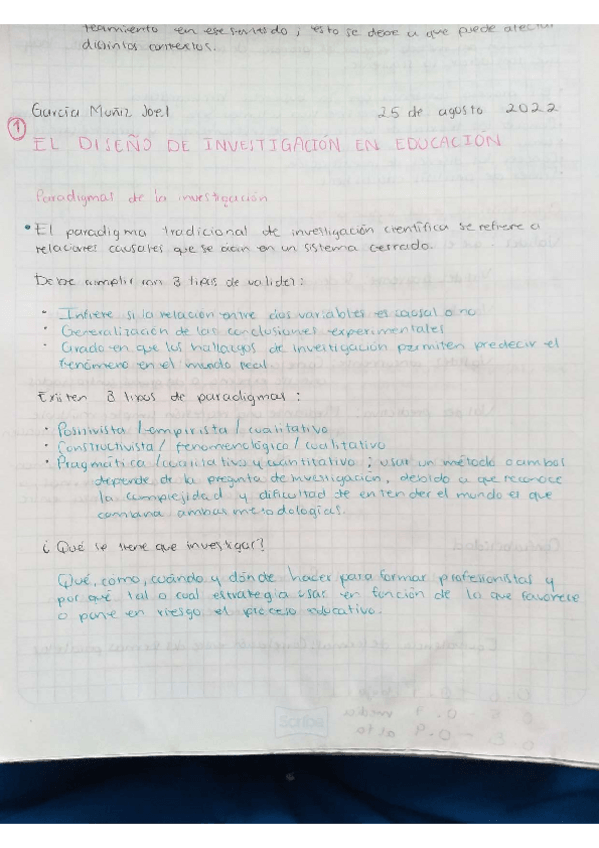 teamiento en ese sentido, esto se debe a que puede afectar
distintos contextos.
García Muñiz Joel 25 de agosto 2022
1
EL DISEÑO DE INVESTIGACIÓN EN EDUCACIÓN
Paradigmas de la investigación
• El paradigma tradicional de investigación científica se refiere a
relaciones causales que se dan en un sistema cerrado.
Debe cumplir con 3 tipos de validez:
• Infiere si la relación entre dos variables es causal o no
• Generalización de las conclusiones experimentales
• Grado en que los hallazgos de investigación permiten predecir el
fenómeno en el mundo real
Existen 3 tipos de paradigmas:
• Positivista / empirista / cualitativo
• Constructivista / fenomenológico / cualitativo
• Pragmática / cualitativo y cuantitativo ; usar un método o ambos
depende de la pregunta de investigación, debido a que reconoce
la complejidad y dificultad de entender el mundo es que
combina ambas metodologías.
¿Qué se tiene que investigar?
Qué, cómo, cuándo y dónde hacer para formar profesionistas y
por qué tal o cual estrategia usar en función de lo que favorece
o pone en riesgo el proceso educativo.
Scribe